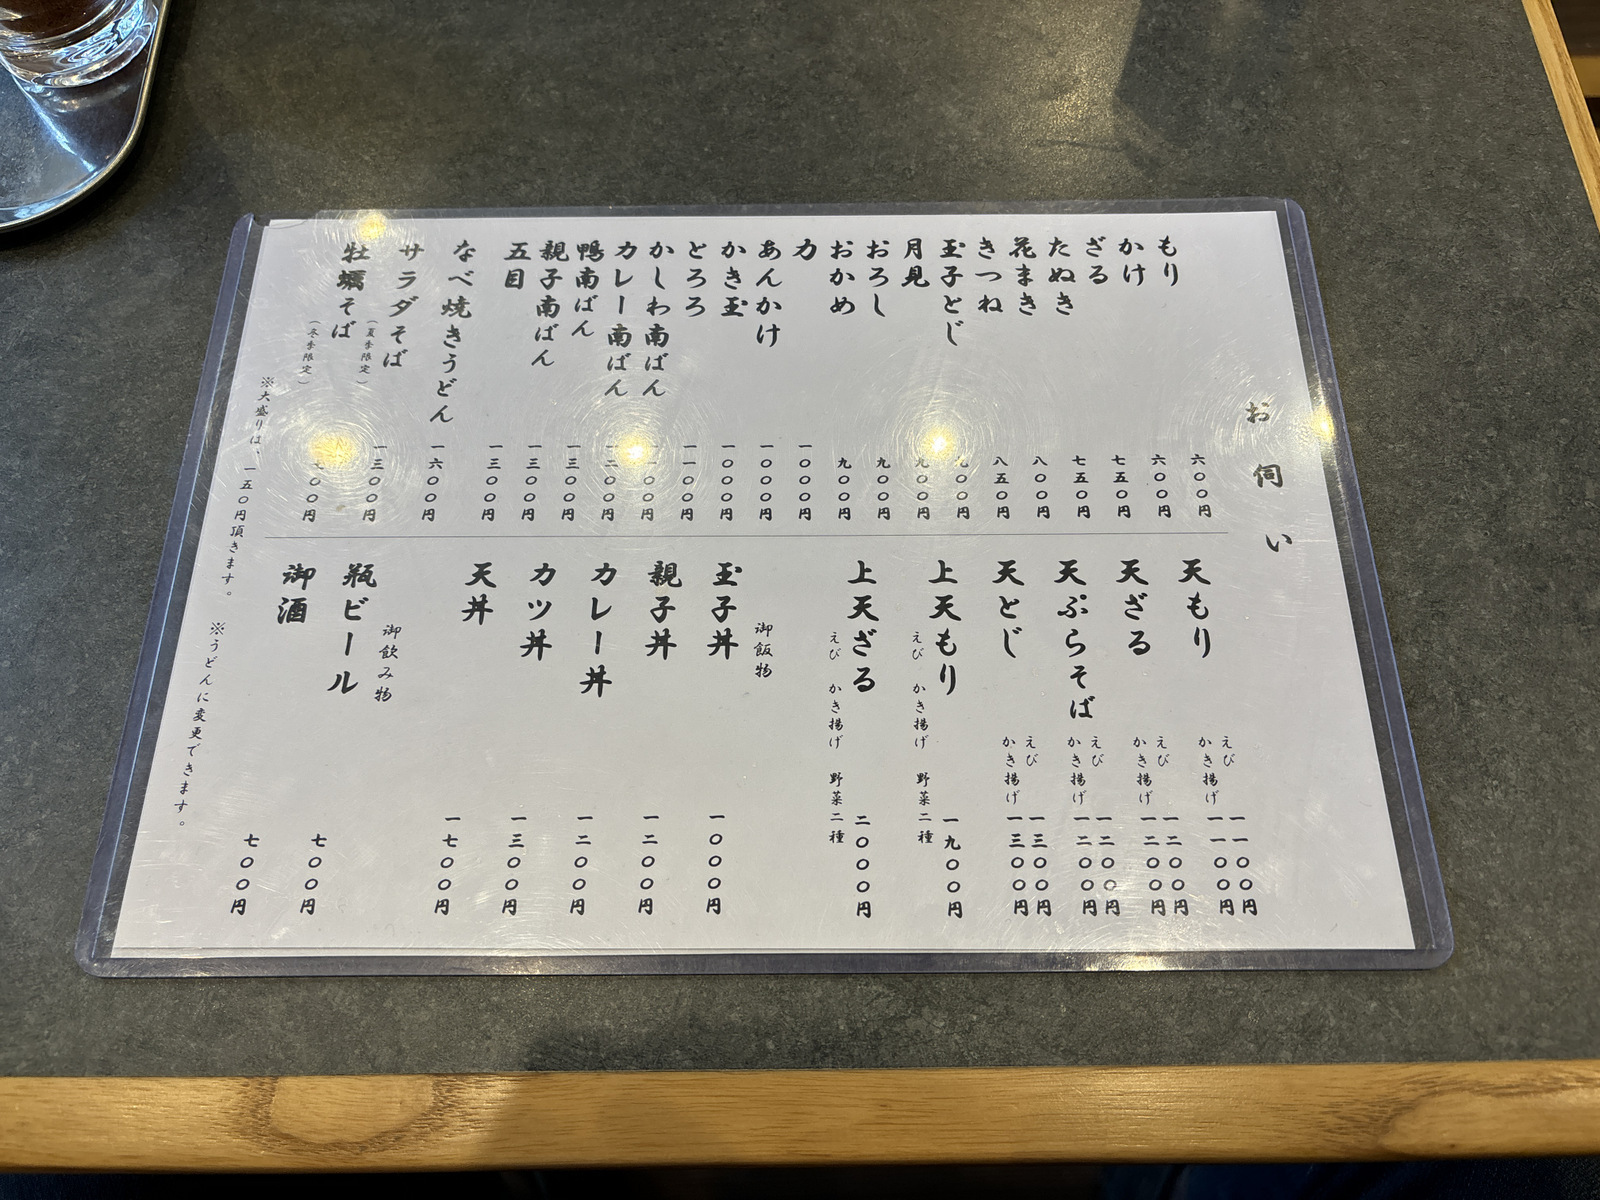 お伺い
もり 六〇〇円
かけ 六〇〇円
ざる 七五〇円
たぬき 七五〇円
花まき 八〇〇円
きつね 八五〇円
玉子とじ 九〇〇円
月見 九〇〇円
おろし 九〇〇円
おかめ 九〇〇円
力 一〇〇〇円
あんかけ 一〇〇〇円
かき玉 一〇〇〇円
とろろ 一一〇〇円
かしわ南ばん 一一〇〇円
カレー南ばん 一二〇〇円
鴨南ばん 一三〇〇円
親子南ばん 一三〇〇円
五目 一三〇〇円
なべ焼きうどん 一六〇〇円
サラダそば (夏季限定) 一三〇〇円
牡蠣そば (冬季限定)
※大盛りは、一五〇円頂きます。 ※うどんに変更できます。
天もり えび 一一〇〇円
かき揚げ 一一〇〇円
天ざる えび 一二〇〇円
かき揚げ 一二〇〇円
天ぷらそば えび 一二〇〇円
かき揚げ 一二〇〇円
天とじ えび 一三〇〇円
かき揚げ 一三〇〇円
上天もり 一九〇〇円
えび かき揚げ 野菜二種
上天ざる 二〇〇〇円
えび かき揚げ 野菜二種
御飯物
玉子丼 一〇〇〇円
親子丼 一二〇〇円
カレー丼 一二〇〇円
カツ丼 一三〇〇円
天丼 一七〇〇円
御飲み物
瓶ビール 七〇〇円
御酒 七〇〇円